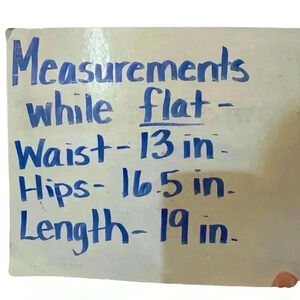 Measurements
while flat-
Waist- 13 in.
Hips- 16.5 in.
Length- 19 in.